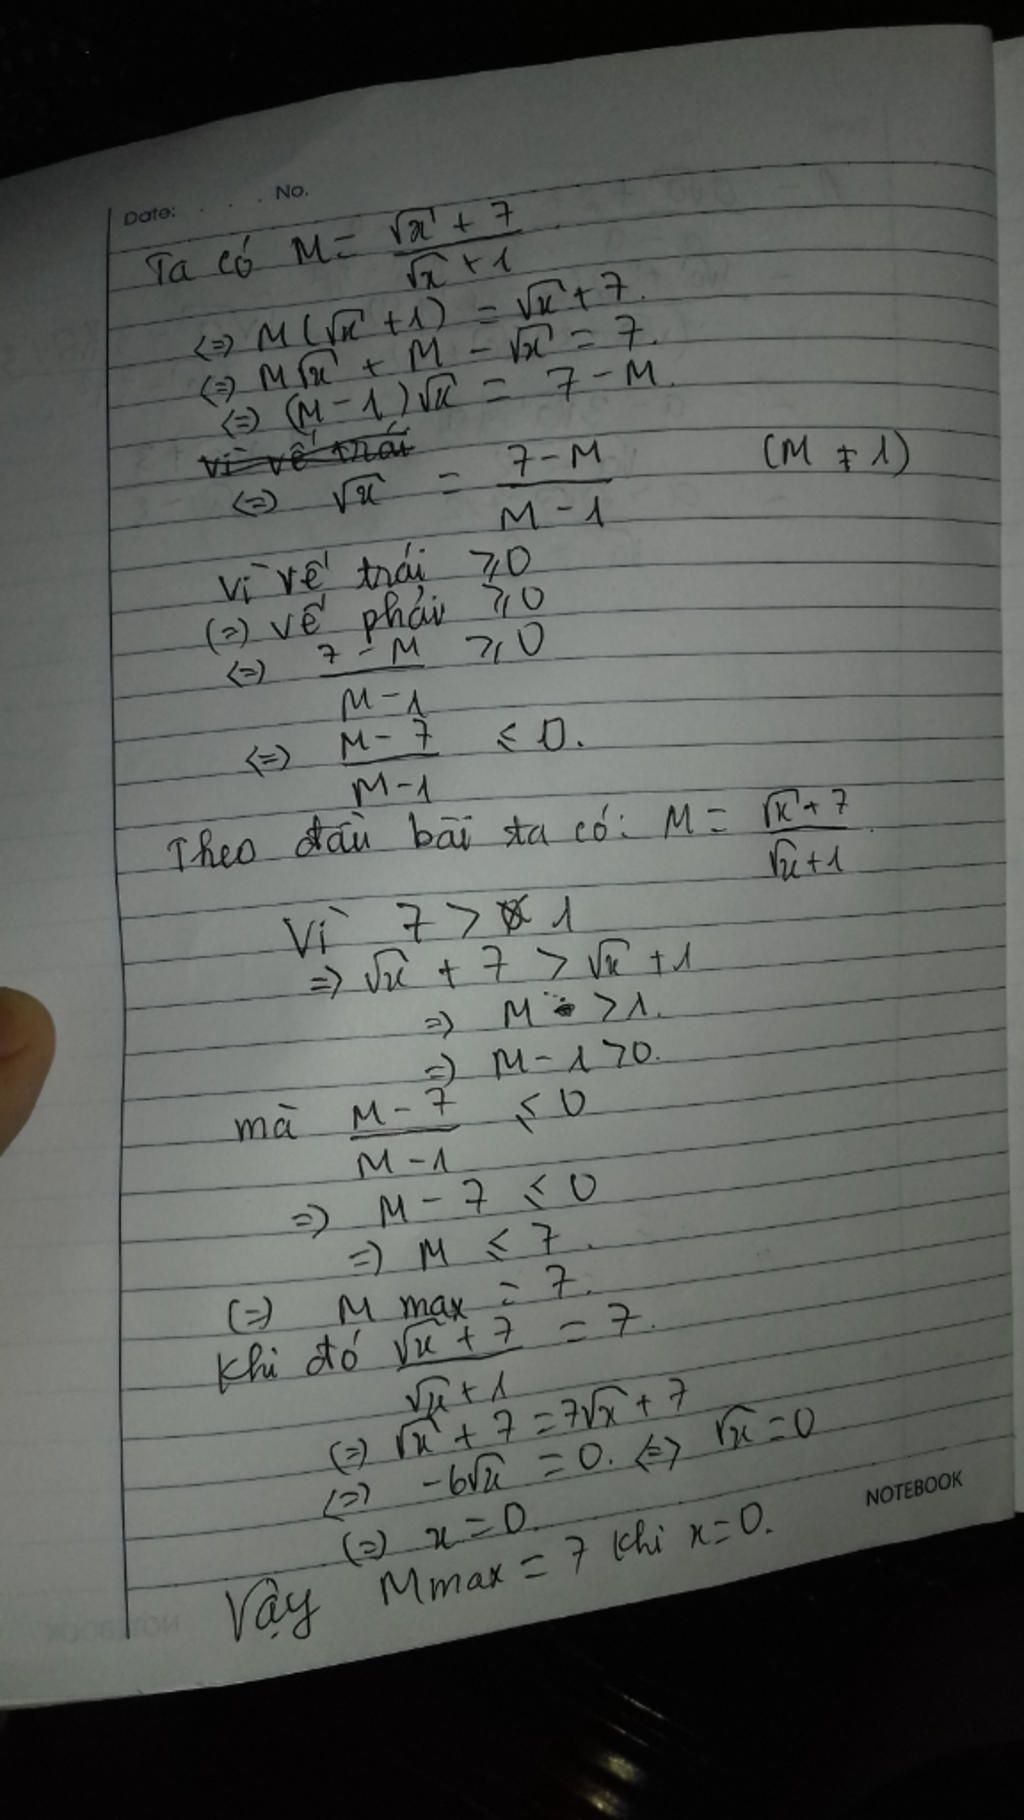 Date: . . . . No.
Ta có M = (√x + 7)/(√x + 1)
<=> M(√x + 1) = √x + 7.
<=> M√x + M - √x = 7.
<=> (M - 1)√x = 7 - M.
vì vế trái
<=> √x = (7 - M)/(M - 1) (M ≠ 1)
Vì vế trái ⩾ 0
(=) vế phải ⩾ 0
<=> (7 - M)/(M - 1) ⩾ 0
<=> (M - 7)/(M - 1) ⩽ 0.
Theo đầu bài ta có: M = (√x + 7)/(√x + 1).
Vì 7 > 1
=> √x + 7 > √x + 1
=> M > 1.
=> M - 1 > 0.
mà (M - 7)/(M - 1) ⩽ 0
=> M - 7 ⩽ 0
=> M ⩽ 7.
(=) M max = 7.
Khi đó (√x + 7)/(√x + 1) = 7.
(=) √x + 7 = 7√x + 7
<=> -6√x = 0. <=> √x = 0
(=) x = 0.
Vậy Mmax = 7 khi x = 0.
NOTEBOOK